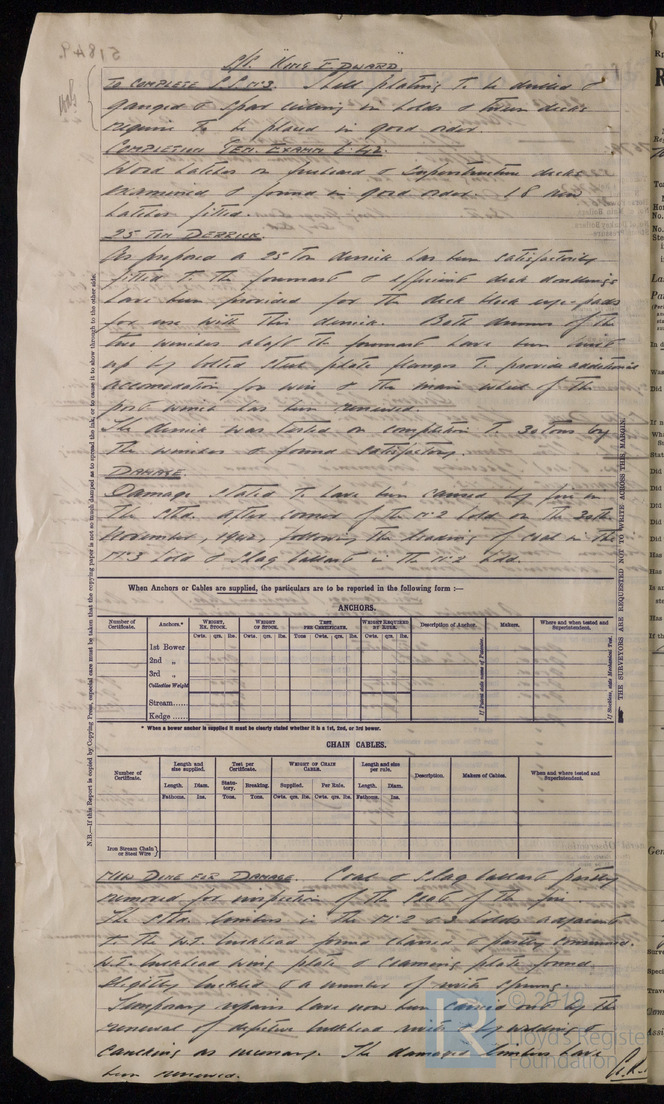 S/S. "KING EDWARD"
TO COMPLETE S.S. No 3. Shell plating to be drilled &
gauged & spar ceiling in holds & tween decks
require to be placed in good order.
COMPLETION GEN. EXAMN
Wood hatches on freeboard & superstructure decks
examined & found in good order. 18 new
hatches fitted.
25 TON DERRICK.
As proposed a 25 Ton derrick has been satisfactorily
fitted to the foremast & efficient deck doublings
have been provided for the deck block eye-pads
for use with this derrick. Both drums of the
two winches abaft the foremast have been built
up by bolted steel plate flanges to provide additional
accomodation for wire & the main wheel of the
port winch has been renewed.
The derrick was tested on completion to 30 tons by
the winches & found satisfactory.
DAMAGE.
Damage stated to have been caused by fire in
the Stbd. after corner of the No 2 hold on the 30th
November, following the loading of coal in the
No 3 hold & Slag ballast in the No 2 hold.
When Anchors or Cables are supplied, the particulars are to be reported in the following form :—
ANCHORS.
Number of Certificate. Anchors.* WEIGHT, EX. STOCK. WEIGHT OF STOCK. TEST PER CERTIFICATE. WEIGHT REQUIRED BY RULE. Description of Anchor. Makers. Where and when tested and Superintendent.
Cwts. qrs. lbs. Cwts. qrs. lbs. Tons Cwts. qrs. lbs. Cwts. qrs. lbs.
1st Bower
2nd „
3rd „
Collective Weight
Stream......
Kedge......
If Patent state name of Patentee.
* When a bower anchor is supplied it must be clearly stated whether it is a 1st, 2nd, or 3rd bower.
CHAIN CABLES.
Number of Certificate. Length and size supplied. Test per Certificate. WEIGHT OF CHAIN CABLE. Length and size per rule. Description. Makers of Cables. When and where tested and Superintendent.
Length. Diam. Statutory. Breaking. Supplied. Per Rule. Length. Diam.
Fathoms. Ins. Tons. Tons. Cwts. qrs. lbs. Cwts. qrs. lbs. Fathoms. Ins.
Iron Stream Chain or Steel Wire }
NOW DONE FOR DAMAGE. Coal & Slag ballast partly
removed for inspection of the seat of the fire.
The Stbd. timbers in the No 2 & 3 holds adjacent
to the W.T. bulkhead found charred & partly consumed.
W.T. bulkhead wing plate & coaming plate found
slightly buckled & a number of rivets sprung.
Temporary repairs have now been carried out by the
renewal of defective bulkhead rivets & by welding &
caulking as necessary. The damaged timbers have
been renewed.
N.B.—If this Report is copied by Copying Press, especial care must be taken that the copying paper is not so much damped as to spread the ink, or to cause it to show through to the other side.
THE SURVEYORS ARE REQUESTED NOT TO WRITE ACROSS THIS MARGIN.
© 2019
Lloyd's Register
Foundation